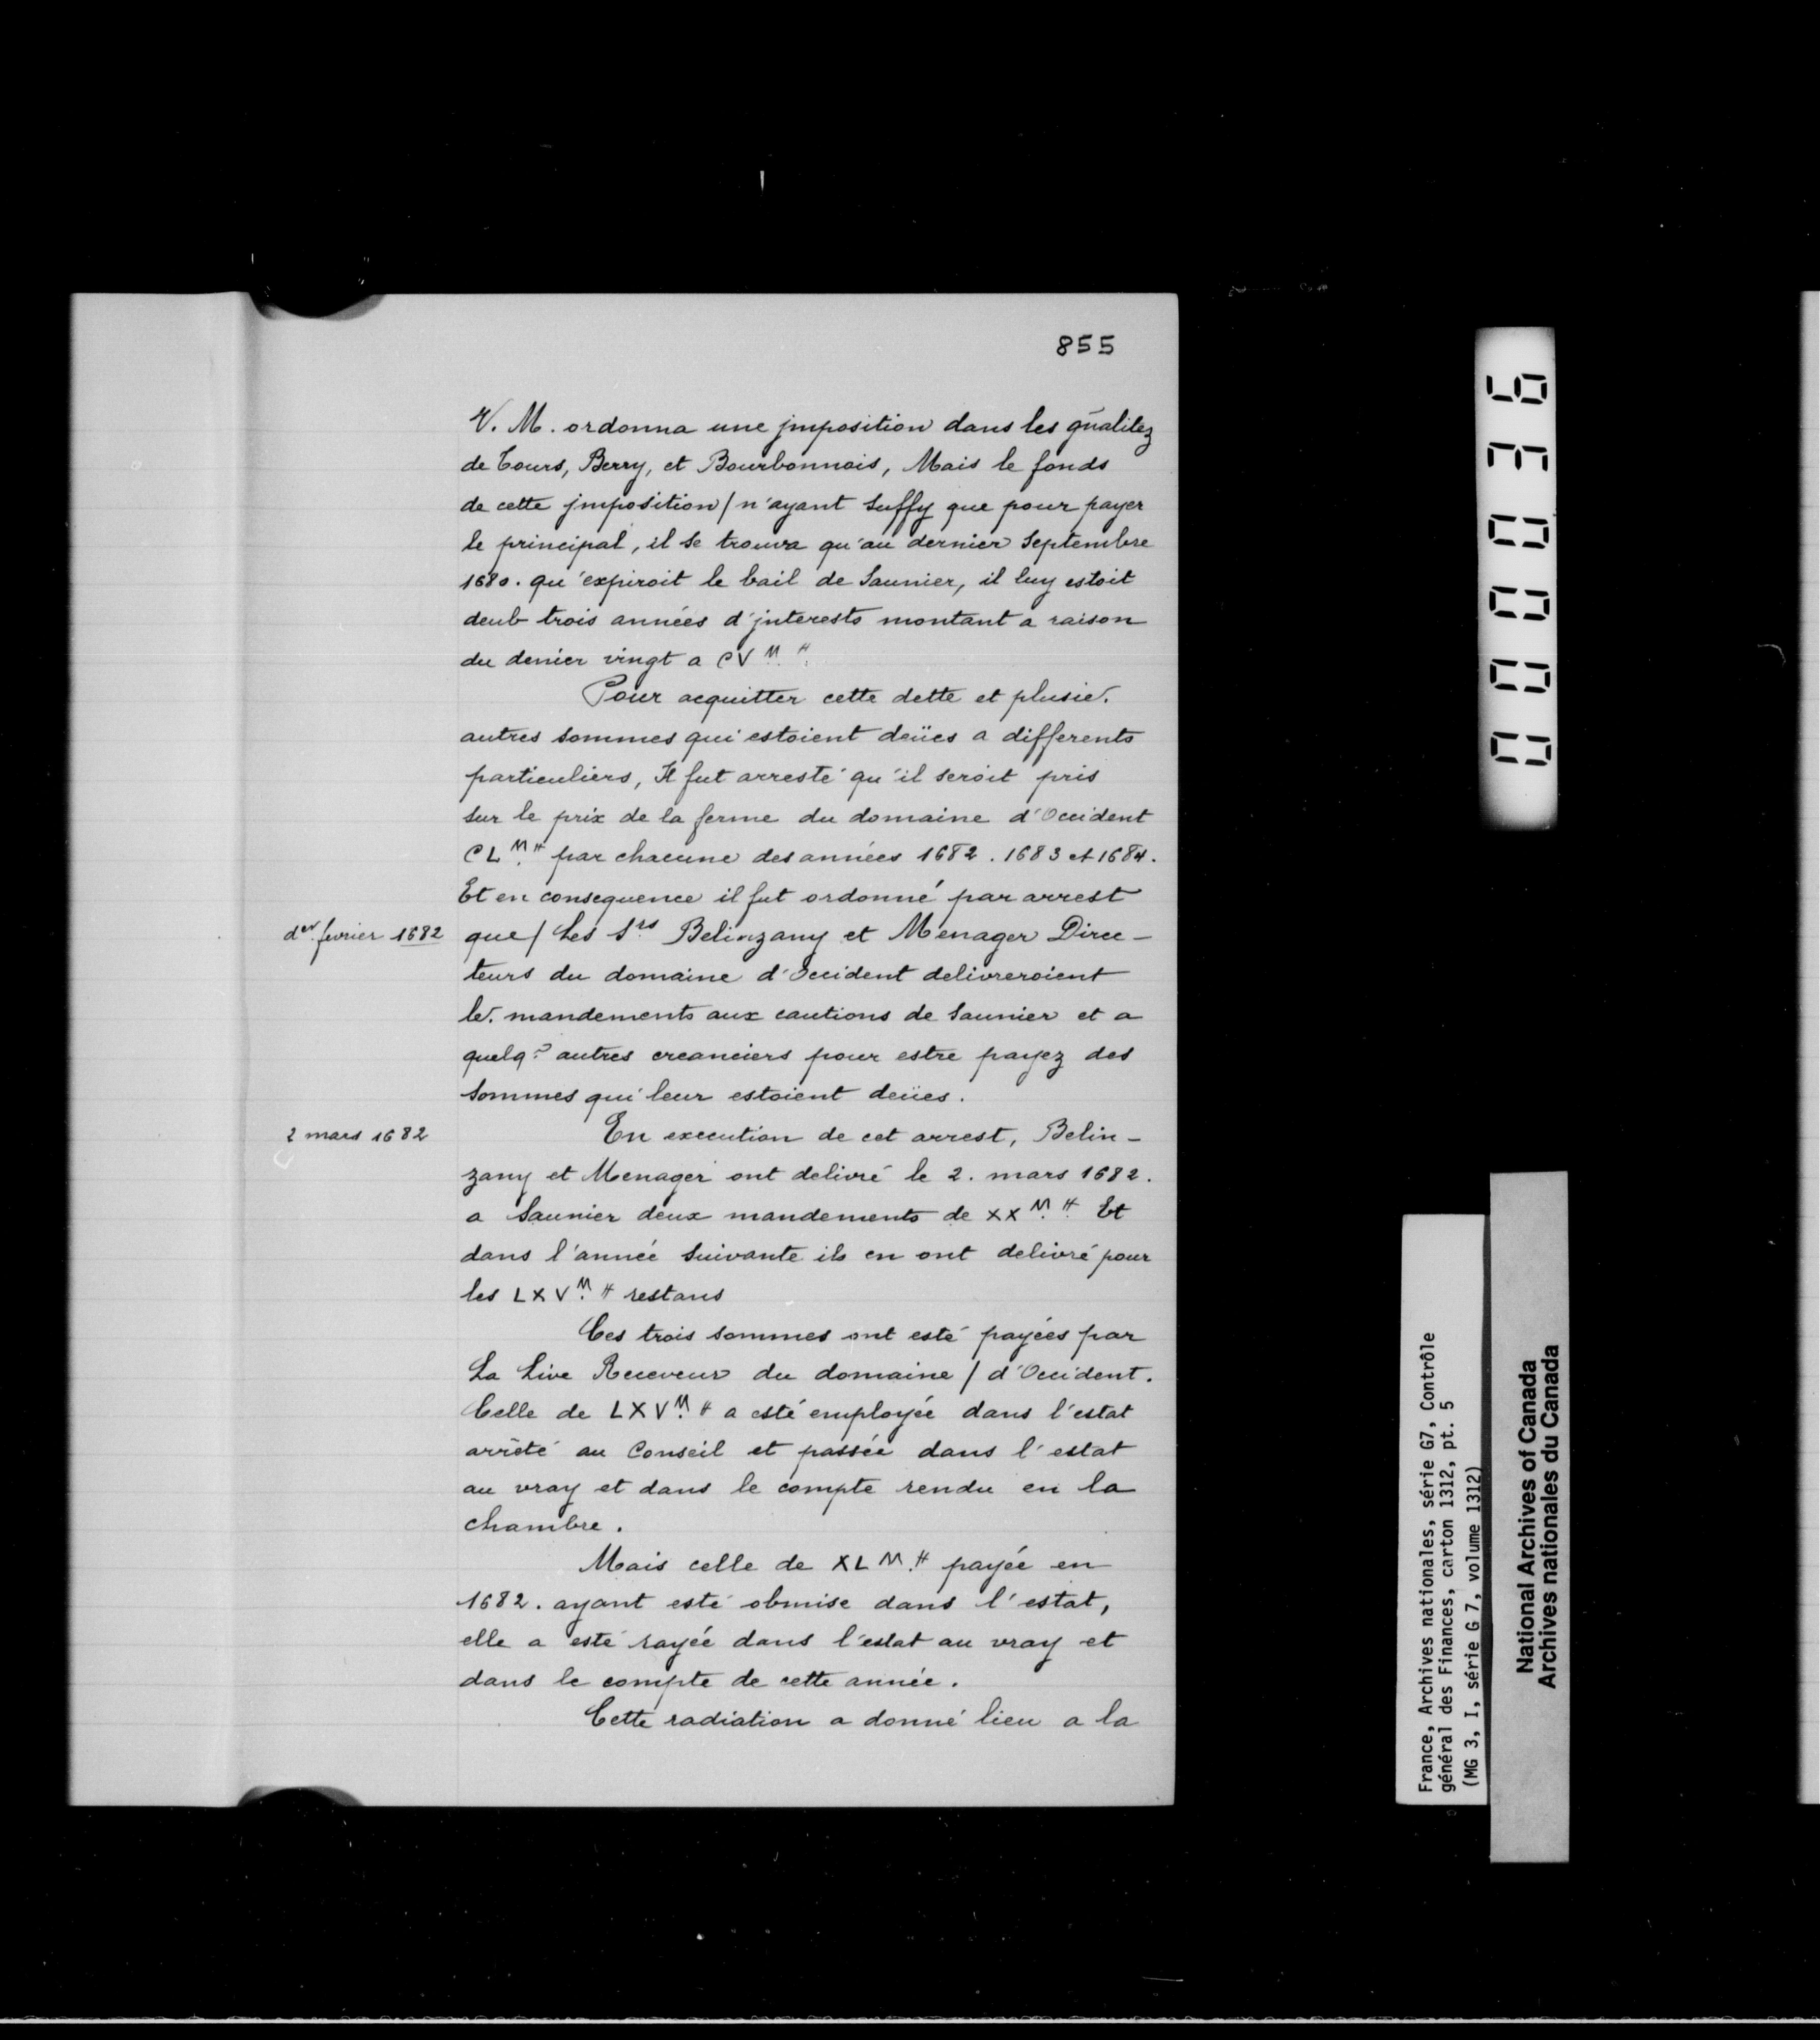 855
V. M. ordonna une jmposition dans les gñalitez
de Tours, Berry, et Bourbonnois, Mais le fonds
de cette jmposition / n'ayant suffy que pour payer
le principal, il se trouva qu'au dernier Septembre
1680. qu'expiroit le bail de Saunier, il luy estoit
deub trois années d'jnterests montant a raison
du denier vingt a CV M. ₶.
Pour acquitter cette dette et plusie.
autres sommes qui estoient deües a differents
particuliers, Il fut arresté qu'il seroit pris
sur le prix de la ferme du domaine d'Occident
CL M. ₶ par chacune des années 1682. 1683 et 1684.
Et en consequence il fut ordonné par arrest
der. fevrier 1682 que / Les Srs Belinzany et Menager Direc-
teurs du domaine d'Occident delivreroient
le. mandements aux cautions de Saunier et a
quelq? autres creanciers pour estre payez des
sommes qui leur estoient deües.
2 mars 1682 En execution de cet arrest, Belin-
zany et Menager ont delivré le 2. mars 1682.
a Saunier deux mandements de XX M. ₶. Et
dans l'année suivante ils en ont delivré pour
les LXV M. ₶ restans
Ces trois sommes ont esté payées par
La Live Receveur du domaine / d'Occident.
Celle de LXV M. ₶ a esté employée dans l'estat
arrêté au Conseil et passée dans l'estat
au vray et dans le compte rendu en la
chambre.
Mais celle de XL M. ₶ payée en
1682. ayant esté obmise dans l'estat,
elle a esté rayée dans l'estat au vray et
dans le compte de cette année.
Cette radiation a donné lieu a la
000036
France, Archives nationales, série G7, Contrôle
général des Finances, carton 1312, pt. 5
(MG 3, I, série G 7, volume 1312)
National Archives of Canada
Archives nationales du Canada